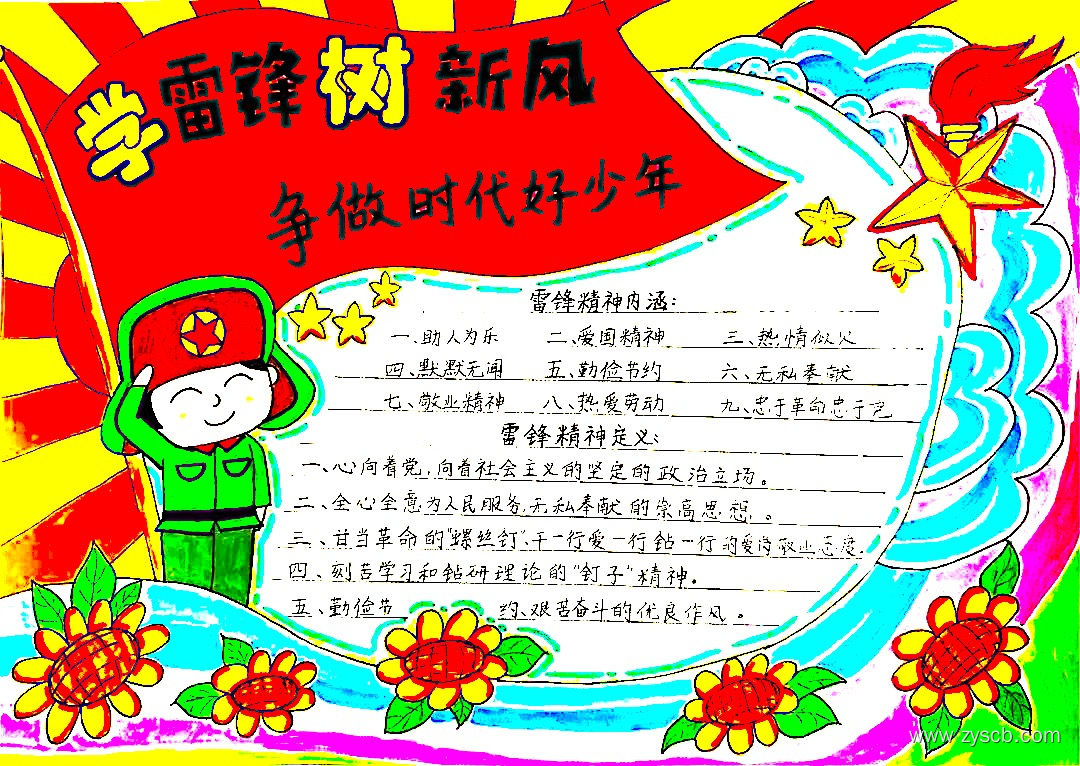 学雷锋树新风
争做时代好少年
雷锋精神内涵:
一、助人为乐 二、爱国精神 三、热情似火
四、默默无闻 五、勤俭节约 六、无私奉献
七、敬业精神 八、热爱劳动 九、忠于革命忠于党
雷锋精神定义:
一、心向着党,向着社会主义的坚定的政治立场。
二、全心全意为人民服务,无私奉献的崇高思想。
三、甘当革命的"螺丝钉",干一行爱一行钻一行的爱岗敬业态度.
四、刻苦学习和钻研理论的"钉子"精神.
五、勤俭节约、艰苦奋斗的优良作风。
www.zyscb.com